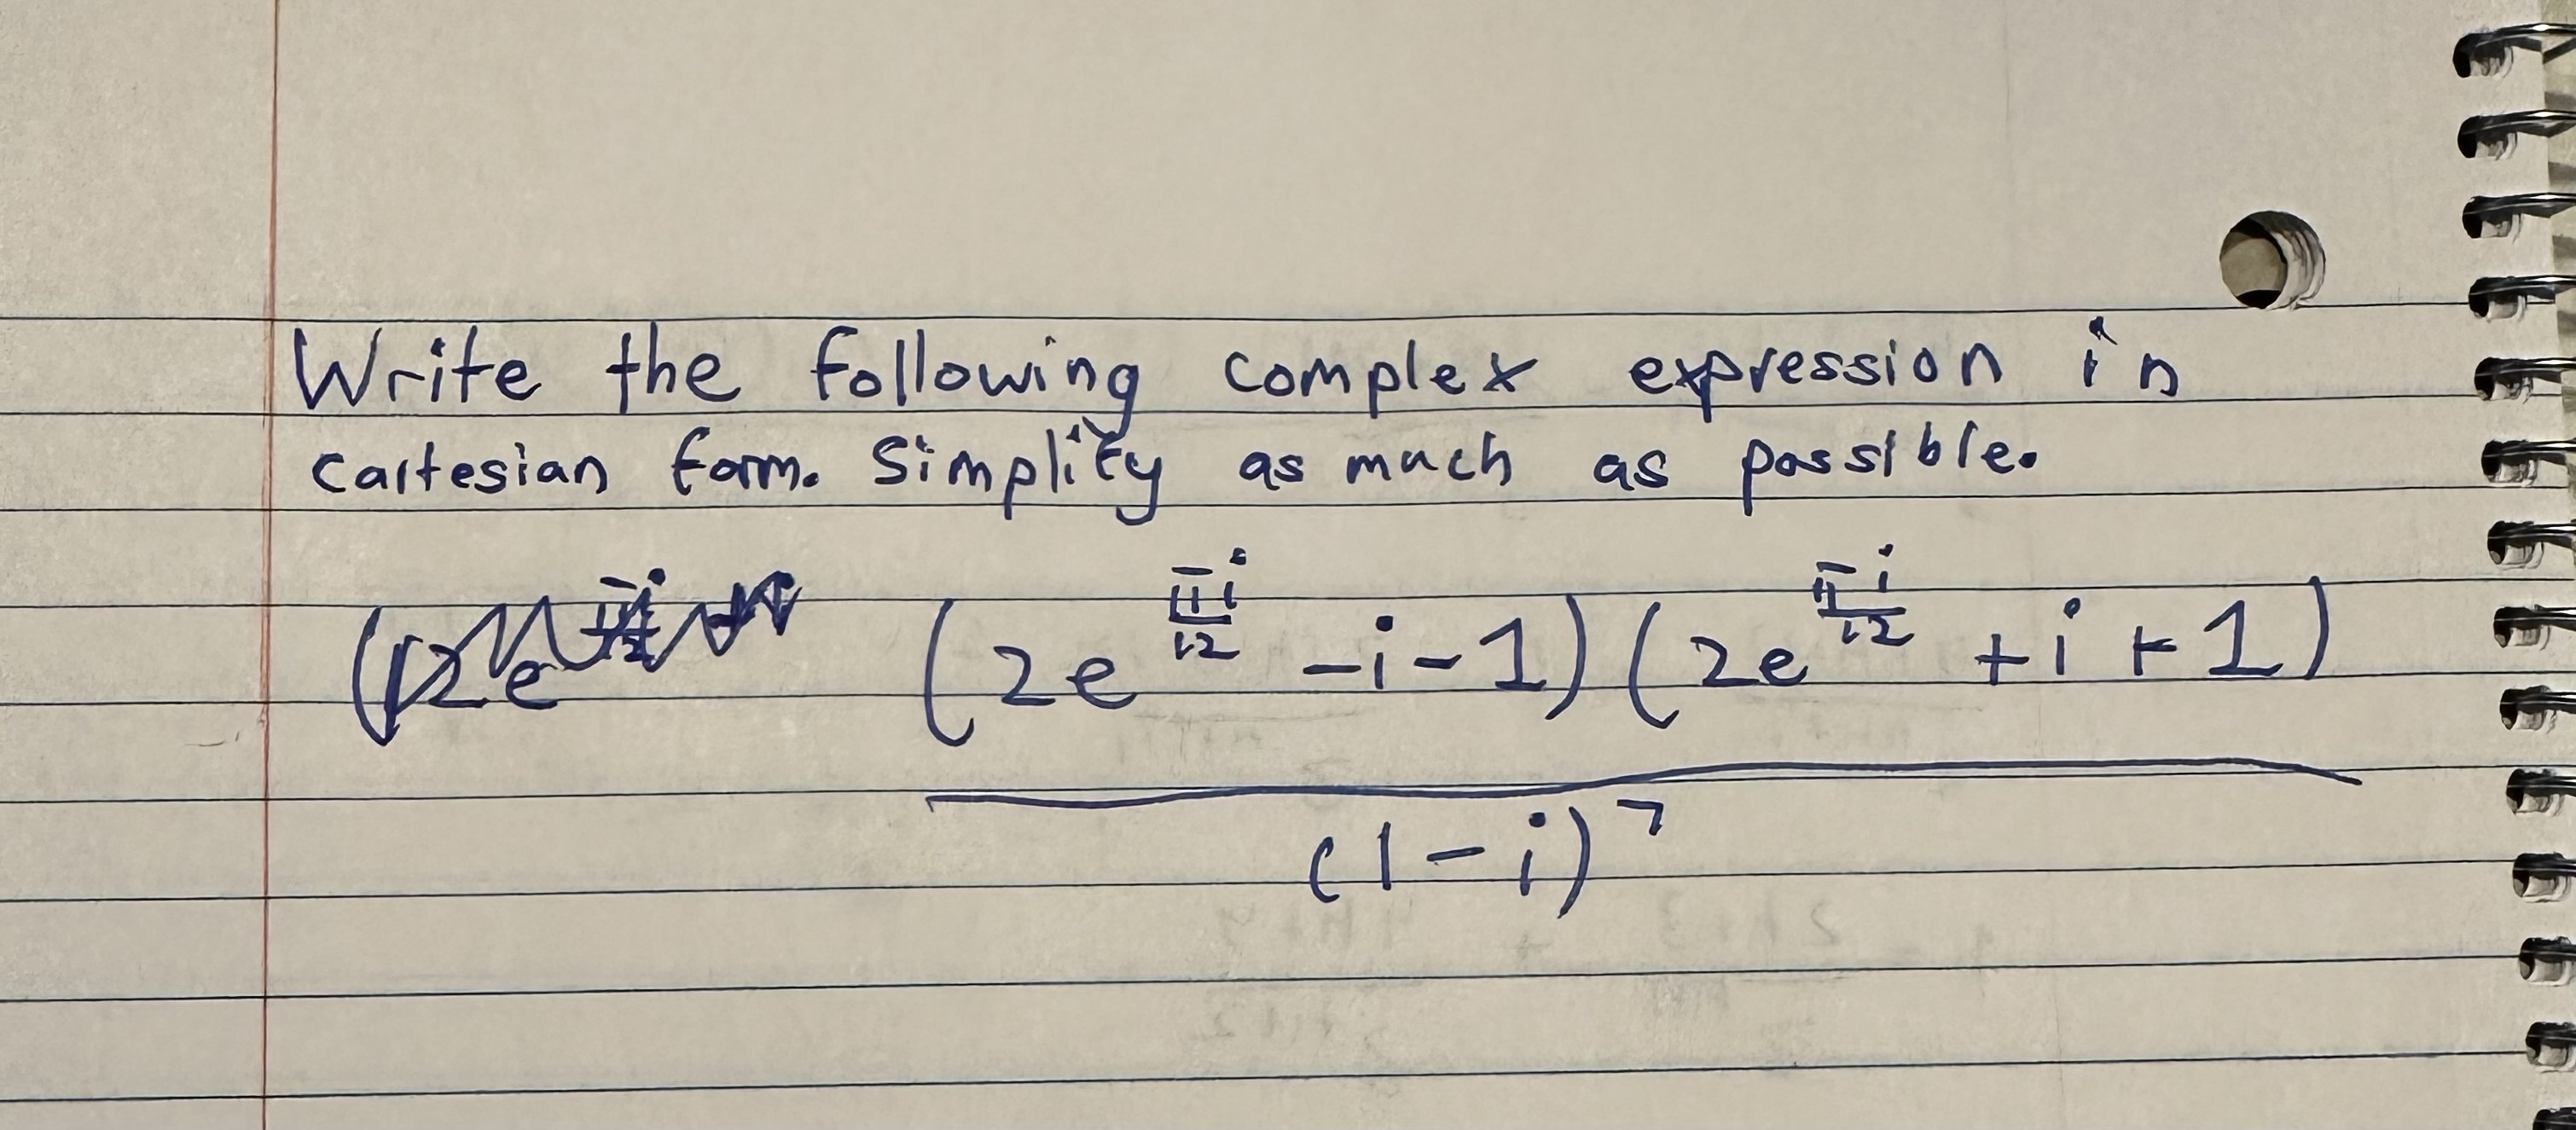 Write the following complex expression in
cartesian form. Simplify as much as possible.
(2e^{\frac{πi}{12}} - i - 1)(2e^{\frac{πi}{12}} + i + 1)
(1 - i)^7